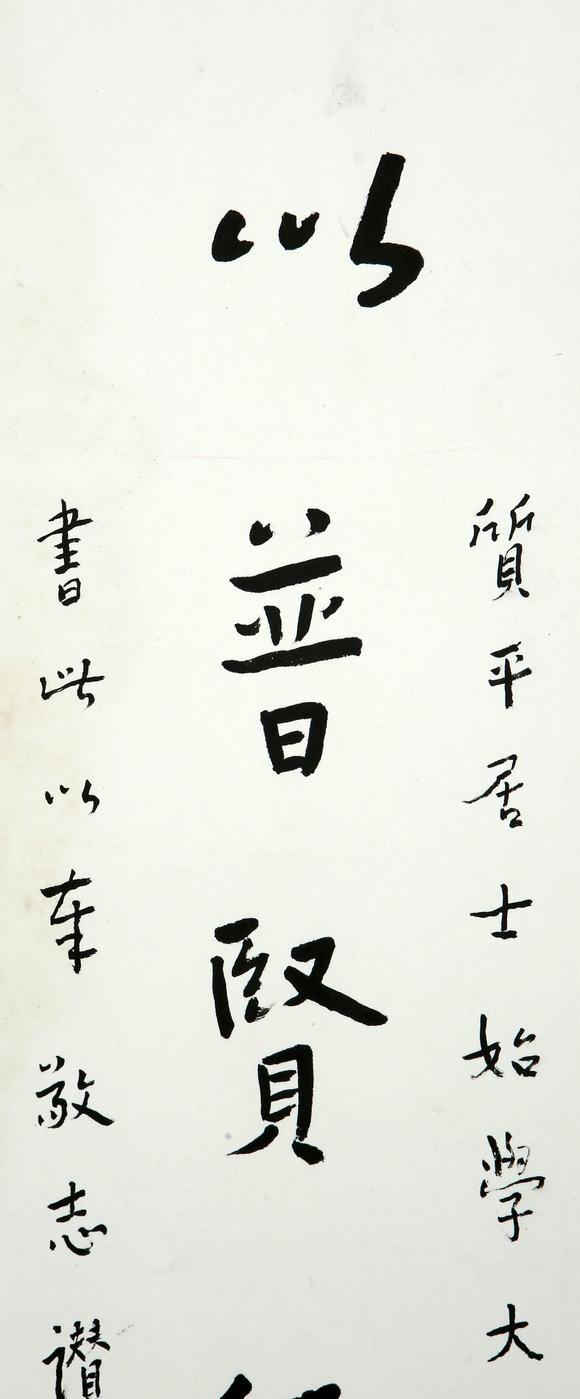 質平居士始學大
以普賢
書此以奉敬志讃